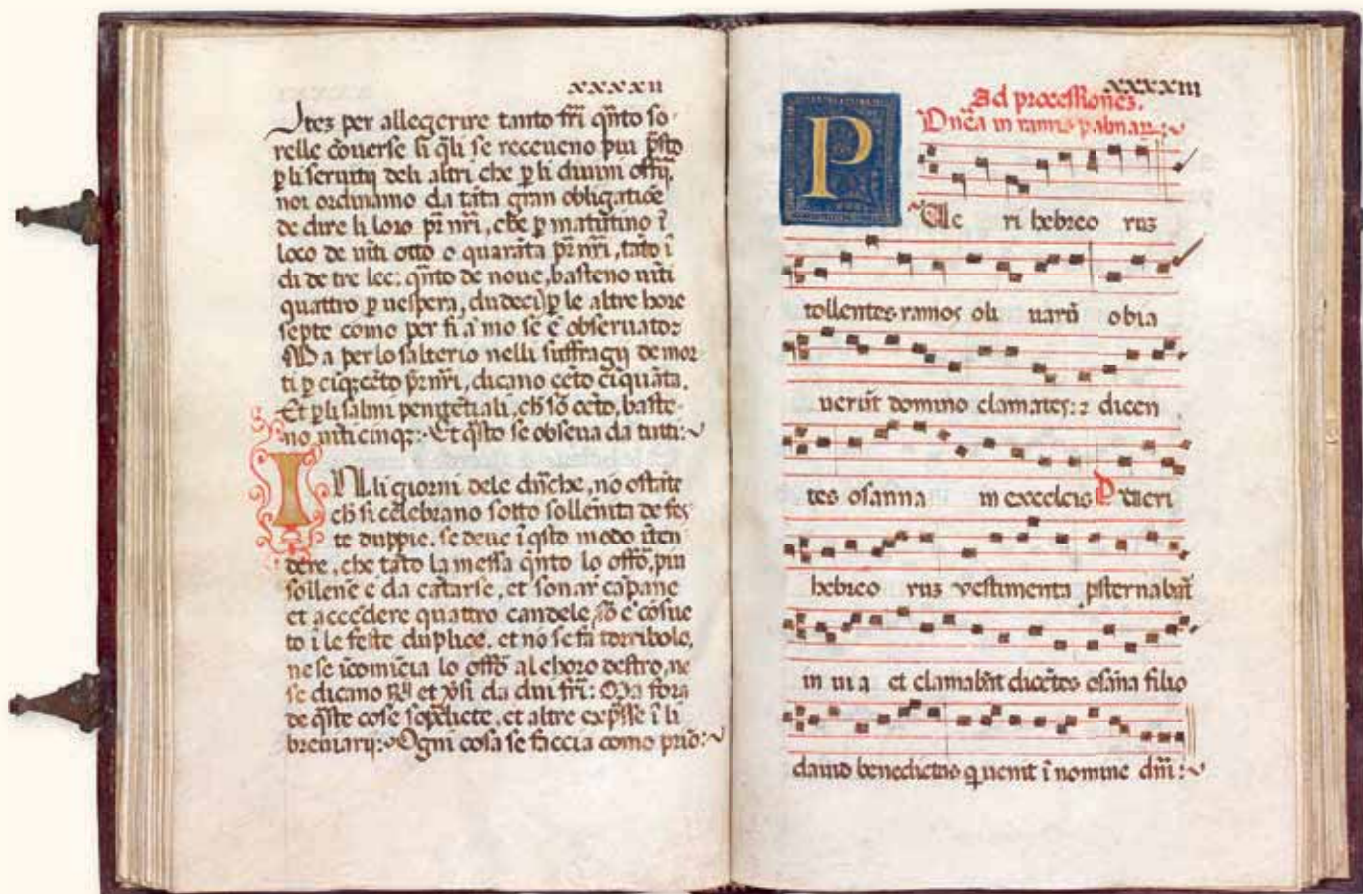 xxxxii
Itez per allegerire tanto fr̃i qñto so-
relle cõuerse li q̃li se receueno piu p̃sto
p̱ li seruitij deli altri che p̱ li diuini offitij,
noi ordinamo da tãta gran obligatiõe
de dire li loro pr̃ nr̃i, che p̱ matutino ĩ
loco de uĩti otto o quarãta pr̃ nr̃i, tãto ĩ
di de tre lec: qñto de noue, basteno uĩti
quattro p̱ uespera, du deci p̱ le altre hore
septe como per fi a mo se è obseruato:
Ma per lo salterio nelli suffragij de mor-
ti p̱ cĩq̃cẽto pr̃ nr̃i, dicano cẽto cĩquãta.
Et p̱ li salmi penitẽtiali, ch̃ sõ cẽto, baste-
no uĩti cinqz: Et q̃sto se obserua da tutti:
INli giorni dele dñiche, no ostãte
ch̃ si celebrano sotto sollẽnita de fes
te duppie. se deue ĩ q̃sto modo ĩten
dere, che tãto la messa qñto lo offõ, piu
sollẽne è da cãtarse, et sonar cãpane
et accẽdere quattro candele, sõ è cõsue
to ĩ le feste duplice. et no se fa torribolo,
ne se ĩcomĩcia lo offõ al choro destro, ne
se dicano R̃ij et v̓si da dui fr̃i: Ma fora
de q̃ste cose sop̱dicte, et altre exp̃sse ĩ li
breuiarij: Ogni cosa se faccia como priõ:
xxxxiii
Ad processiones.
Dñica in ramis palmaꝝ:
PUe ri hebreo ruz
tollentes ramos oli uarũ obia
uerũt domino clamãtes: ⁊ dicen
tes osanna in excelsis Pueri
hebreo ruz vestimenta p̱sternabãt
in uia et clamabãt dicẽtes osãna filio
dauid benedictus q̱ uenit ĩ nomine dñi: